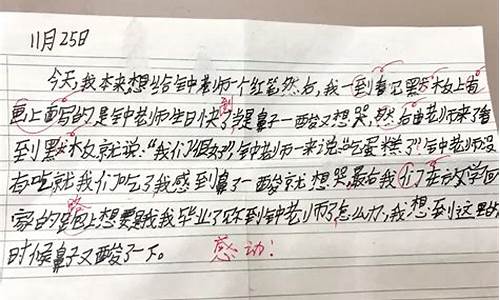 11月25日
今天,我本来想给钟老师一个红笔然后,我一到看见黑木板上有
画上面写的是钟老师生日快了当是鼻子一酸又想哭,然后由老师来了看
到黑木板就说:“我们很好”,钟老师一来说“吃蛋糕了”钟老师没
有吃就我们吃了我感到鼻了一酸就想哭,最后我们在放学回
家的路上想要是我毕业了见不到钟老师了怎么办,我想到这里的
时候鼻子又酸了一下。 感动!